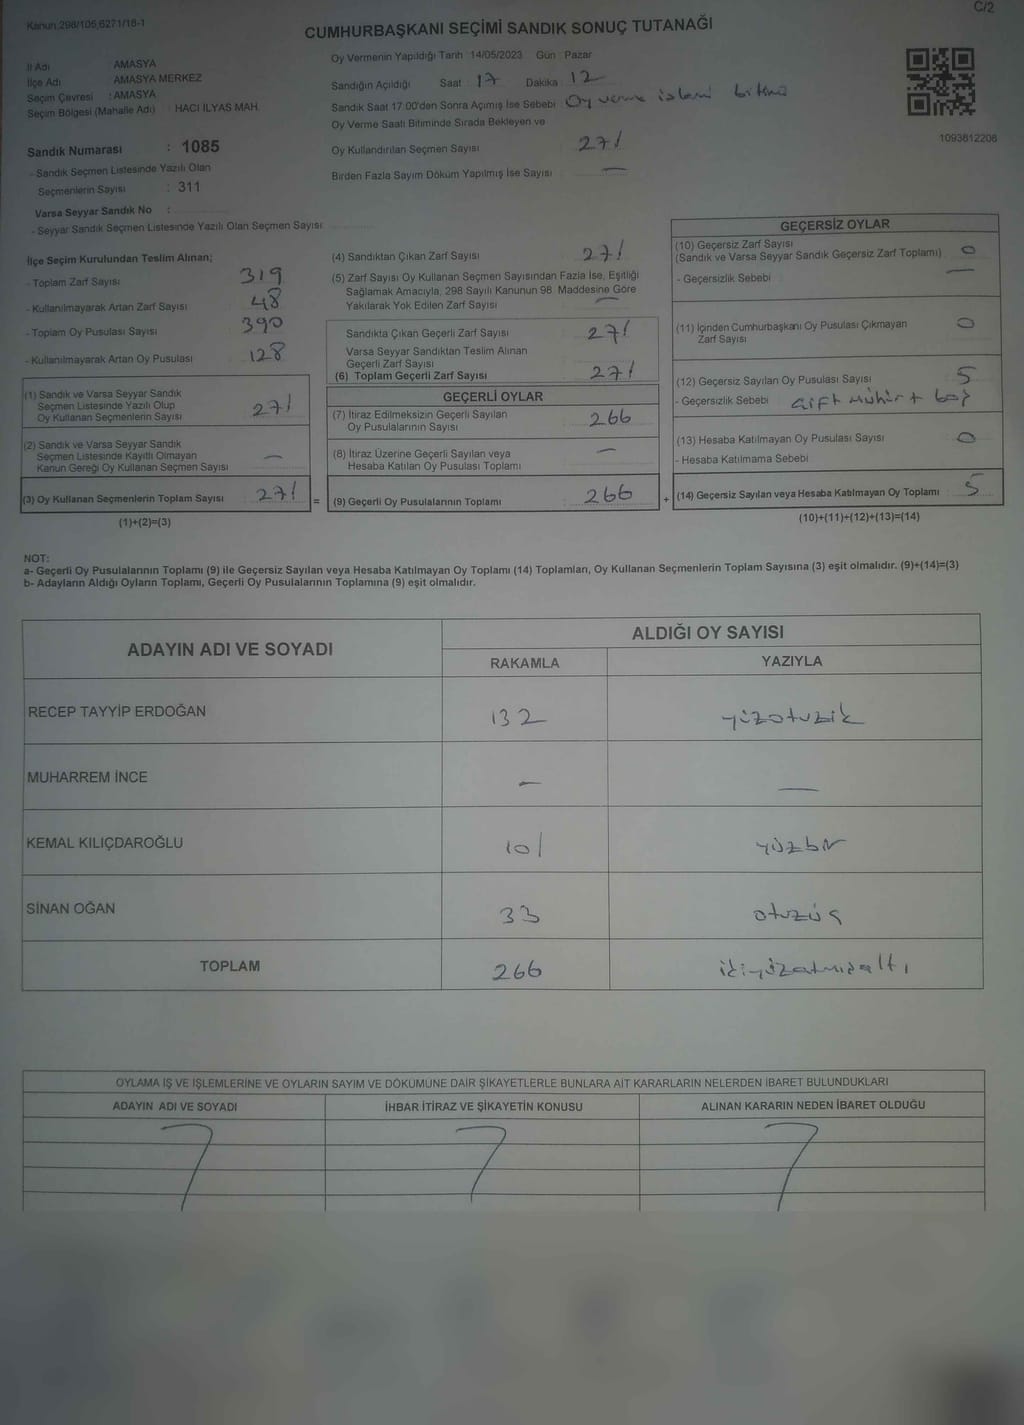 Kanun,298/105,6271/18-1
C/2
CUMHURBAŞKANI SEÇİMİ SANDIK SONUÇ TUTANAĞI
İl Adı AMASYA
İlçe Adı AMASYA MERKEZ
Seçim Çevresi : AMASYA
Seçim Bölgesi (Mahalle Adı) : HACI İLYAS MAH.
Sandık Numarası : 1085
- Sandık Seçmen Listesinde Yazılı Olan
Seçmenlerin Sayısı : 311
Varsa Seyyar Sandık No :
- Seyyar Sandık Seçmen Listesinde Yazılı Olan Seçmen Sayısı:
Oy Vermenin Yapıldığı Tarih : 14/05/2023 Gün : Pazar
Sandığın Açıldığı Saat : 17 Dakika : 12
Sandık Saat 17:00'den Sonra Açımış İse Sebebi : Oy verme işlemi bitimi
Oy Verme Saati Bitiminde Sırada Bekleyen ve
Oy Kullandırılan Seçmen Sayısı : 271
Birden Fazla Sayım Döküm Yapılmış İse Sayısı : —
1093812208
İlçe Seçim Kurulundan Teslim Alınan;
- Toplam Zarf Sayısı : 319
- Kullanılmayarak Artan Zarf Sayısı : 48
- Toplam Oy Pusulası Sayısı : 390
- Kullanılmayarak Artan Oy Pusulası : 128
(1) Sandık ve Varsa Seyyar Sandık
Seçmen Listesinde Yazılı Olup
Oy Kullanan Seçmenlerin Sayısı 271
(2) Sandık ve Varsa Seyyar Sandık
Seçmen Listesinde Kayıtlı Olmayan
Kanun Gereği Oy Kullanan Seçmen Sayısı —
(3) Oy Kullanan Seçmenlerin Toplam Sayısı : 271
(1)+(2)=(3)
=
(4) Sandıktan Çıkan Zarf Sayısı : 271
(5) Zarf Sayısı Oy Kullanan Seçmen Sayısından Fazla İse, Eşitliği
Sağlamak Amacıyla, 298 Sayılı Kanunun 98. Maddesine Göre
Yakılarak Yok Edilen Zarf Sayısı —
Sandıkta Çıkan Geçerli Zarf Sayısı : 271
Varsa Seyyar Sandıktan Teslim Alınan
Geçerli Zarf Sayısı
(6) Toplam Geçerli Zarf Sayısı : 271
GEÇERLİ OYLAR
(7) İtiraz Edilmeksizin Geçerli Sayılan
Oy Pusulalarının Sayısı 266
(8) İtiraz Üzerine Geçerli Sayılan veya
Hesaba Katılan Oy Pusulası Toplamı —
(9) Geçerli Oy Pusulalarının Toplamı : 266
+
GEÇERSİZ OYLAR
(10) Geçersiz Zarf Sayısı
(Sandık ve Varsa Seyyar Sandık Geçersiz Zarf Toplamı) : 0
- Geçersizlik Sebebi : —
(11) İçinden Cumhurbaşkanı Oy Pusulası Çıkmayan
Zarf Sayısı 0
(12) Geçersiz Sayılan Oy Pusulası Sayısı : 5
- Geçersizlik Sebebi : Çift mühür + boş
(13) Hesaba Katılmayan Oy Pusulası Sayısı : 0
- Hesaba Katılmama Sebebi
(14) Geçersiz Sayılan veya Hesaba Katılmayan Oy Toplamı : 5
(10)+(11)+(12)+(13)=(14)
NOT:
a- Geçerli Oy Pusulalarının Toplamı (9) ile Geçersiz Sayılan veya Hesaba Katılmayan Oy Toplamı (14) Toplamları, Oy Kullanan Seçmenlerin Toplam Sayısına (3) eşit olmalıdır. (9)+(14)=(3)
b- Adayların Aldığı Oyların Toplamı, Geçerli Oy Pusulalarının Toplamına (9) eşit olmalıdır.
ADAYIN ADI VE SOYADI
ALDIĞI OY SAYISI
RAKAMLA YAZIYLA
RECEP TAYYİP ERDOĞAN 132 yüzotuziki
MUHARREM İNCE — —
KEMAL KILIÇDAROĞLU 101 yüzbir
SİNAN OĞAN 33 otuzüç
TOPLAM 266 ikiyüzatmışaltı
OYLAMA İŞ VE İŞLEMLERİNE VE OYLARIN SAYIM VE DÖKÜMÜNE DAİR ŞİKAYETLERLE BUNLARA AİT KARARLARIN NELERDEN İBARET BULUNDUKLARI
ADAYIN ADI VE SOYADI İHBAR İTİRAZ VE ŞİKAYETİN KONUSU ALINAN KARARIN NEDEN İBARET OLDUĞU